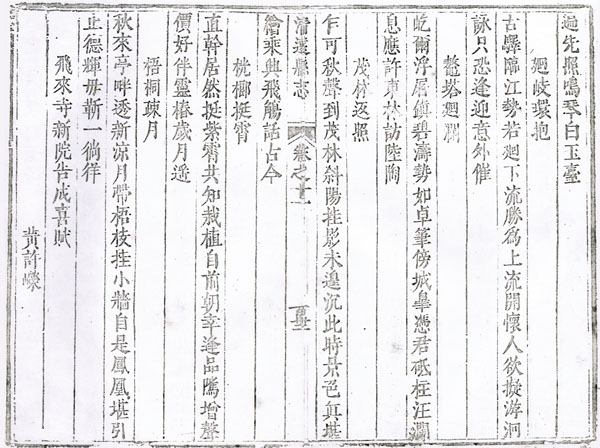 過先照鳴琴白玉臺
迴岐環抱
古驛臨江勢若迴下流勝爲上流開懷人欲擬游洄
詠只恐逢迎意外催
鼇塔迴瀾
屹爾浮屠鎮碧濤勢如卓筆傍城臯憑君砥柱汪瀾
息應許東林訪陸陶
茂林返照
乍可秋聲到茂林斜陽挂影未遑沉此時景色真堪
清遠縣志
卷之十一
繪乘興飛觴話古今
桄榔挺霄
直幹居然挺紫霄共知栽植自前朝幸逢品隲增聲
價好伴靈椿歲月遥
梧桐疎月
秋來亭畔透新凉月帶梧枝挂小牆自是鳳凰堪引
止德輝毋靳一徜徉
飛來寺新院告成喜賦
黃許嶸